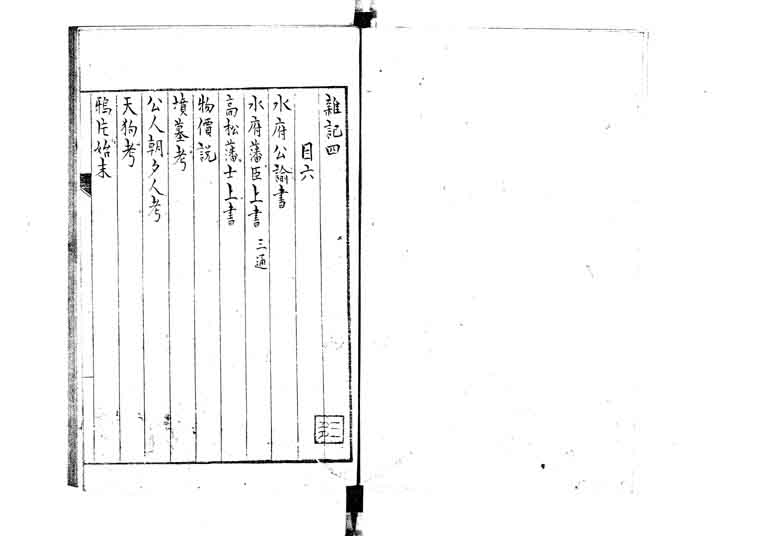 雜記四
目六
水府公諭書
水府藩臣上書 三通
高松藩士上書
物價説
墳墓考
公人朝夕人考
天狗考
鴉片始末